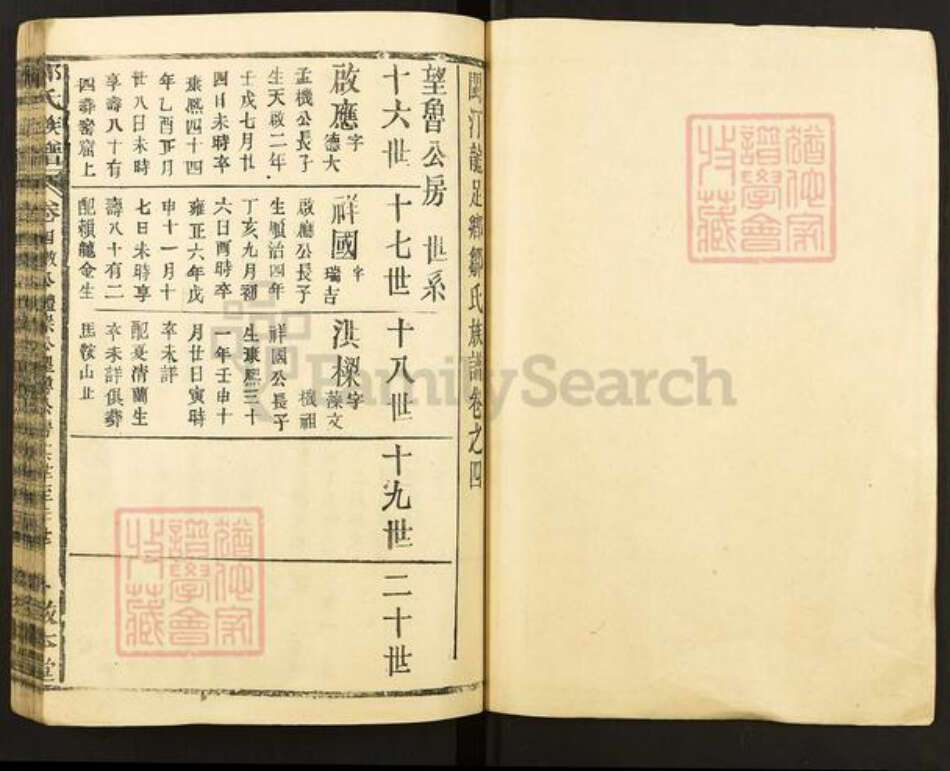 閩汀龍足鄉鄒氏族譜卷之四
望魯公房 世系
十六世
十七世
十八世
十九世
二十世
啟應
字德大
孟機公長子
生天啟二年
壬戌七月廿
四日未時卒
康熙四十四
年乙酉正月
廿八日未時
享壽八十有
四葬窑窟上
祥國
字瑞吉
啟應公長子
生順治四年
丁亥九月初
六日酉時卒
雍正六年戊
申十一月十
七日未時享
壽八十有二
配賴龍金生
淇樑
字藻文
機祖
祥國公長子
生康熙三十
一年壬申十
月廿日寅時
卒未詳
配夏清蘭生
卒未詳俱葬
馬鞍山止
氏族譜
卷四
敘本堂
譜學會
收藏
譜學會
收藏
FamilySearch